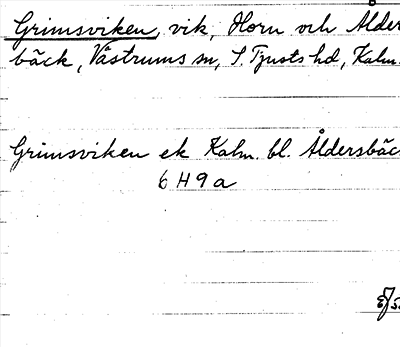 Grimsviken, vik, Horn och Ålder
bäck, Västrums sn, S. Tjusts hd, Kalm.
Grimsviken ek Kalm. bl. Åldersbäc
6 H 9 a